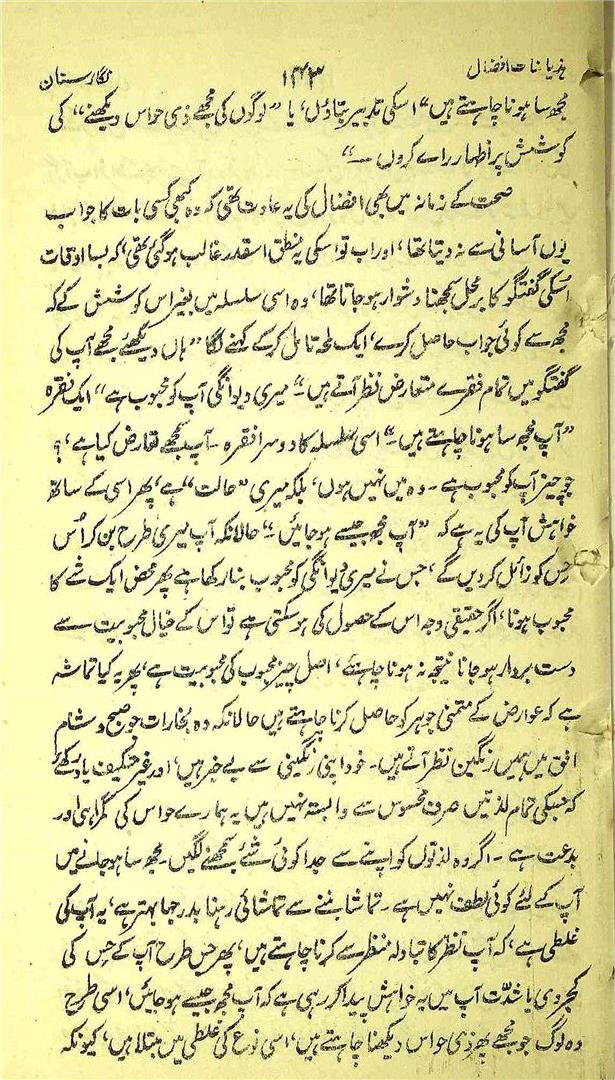 ہذیانات افضال ۱۴۳ نگارستان
مجھ سا ہونا چاہتے ہیں“ اسکی تدبیر بتاؤں، یا ”لوگوں کی مجھے ذی حواس دیکھنے“ کی
کوشش پر اظہار راے کروں ۔“
صحت کے زمانہ میں بھی افضال کی یہ عادت تھی کہ وہ کبھی کسی بات کا جواب
یوں آسانی سے نہ دیتا تھا، اور اب تو اسکی یہ منطق اسقدر غالب ہوگئی تھی، کہ بسا اوقات
اُسکی گفتگو کا برمحل سمجھنا دشوار ہو جاتا تھا، وہ اسی سلسلہ میں بغیر اس کوشش کے کہ
مجھ سے کوئی جواب حاصل کرے، ایک لمحہ تامل کرکے کہنے لگا ”ہاں دیکھئے مجھے آپ کی
گفتگو میں تمام فقرے متعارض نظر آتے ہیں۔“ میری دیوانگی آپ کو محبوب ہے“ ایک فقرہ
”آپ مجھ سا ہونا چاہتے ہیں۔“ اسی سلسلہ کا دوسرا فقرہ ۔ آپ سمجھے تعارض کیا ہے، ؟
جو چیز آپ کو محبوب ہے ۔ وہ میں نہیں ہوں، بلکہ میری ”حالت“ ہے، پھر اسی کے ساتھ
خواہش آپ کی یہ ہے کہ ”آپ مجھ جیسے ہو جائیں۔“ حالانکہ آپ میری طرح بن کر اُس
حِس کو زائل کر دیں گے، جس نے میری دیوانگی کو محبوب بنا رکھا ہے پھر محض ایک شے کا
محبوب ہونا، اگر حقیقی وجہ اس کے حصول کی ہو سکتی ہے تو اس کے خیال محبوبیت سے
دست بردار ہو جانا نتیجہ نہ ہونا چاہئے، اصل چیز محبوب کی محبوبیت ہے، پھر یہ کیا تماشہ
ہے کہ عوارض کے متمنی جوہر کو حاصل کرنا چاہتے ہیں حالانکہ وہ بخارات جو صبح و شام
افق میں ہمیں رنگین نظر آتے ہیں ۔ خود اپنی رنگینی سے بے خبر ہیں، اور غیر متکیف یاد رکھئے
کہ حِسکی تمام لذتیں صرف محسوس سے وابستہ نہیں ہیں یہ ہمارے حواس کی گمراہی اور
بدعت ہے ۔ اگر وہ لذتوں کو اپنے سے جدا کوئی شئے سمجھنے لگیں ۔ مجھ سا ہو جانے میں
آپ کے لئے کوئی لطف نہیں ہے ۔ تماشا بننے سے تماشائی رہنا بدرجہا بہتر ہے، یہ آپ کی
غلطی ہے، کہ آپ نظر کا تبادلہ منظر سے کرنا چاہتے ہیں، پھر جس طرح آپ کے حِس کی
کجروی یا شدّت آپ میں یہ خواہش پیدا کر رہی ہے کہ آپ مجھ جیسے ہو جائیں، اسی طرح
وہ لوگ جو مجھے پھر ذی حواس دیکھنا چاہتے ہیں، اسی نوع کی غلطی میں مبتلا ہیں، کیونکہ